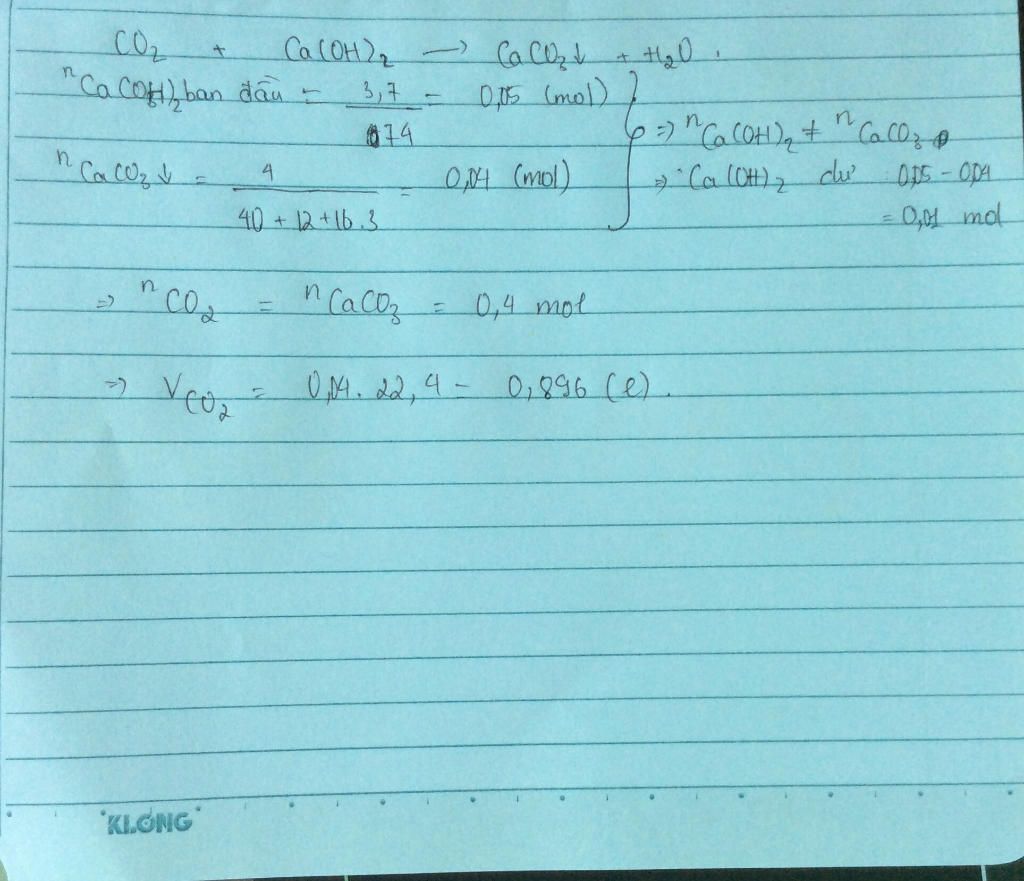 CO2 + Ca(OH)2 → CaCO3↓ + H2O.
nCa(OH)2 ban đầu = 3,7 / 74 = 0,05 (mol)
nCaCO3↓ = 4 / 40 + 12 + 16.3 = 0,04 (mol)
⇒ nCa(OH)2 ≠ nCaCO3
⇒ Ca(OH)2 dư : 0,05 - 0,04
= 0,01 mol
⇒ nCO2 = nCaCO3 = 0,4 mol
⇒ VCO2 = 0,04. 22,4 = 0,896 (l).
KLONG